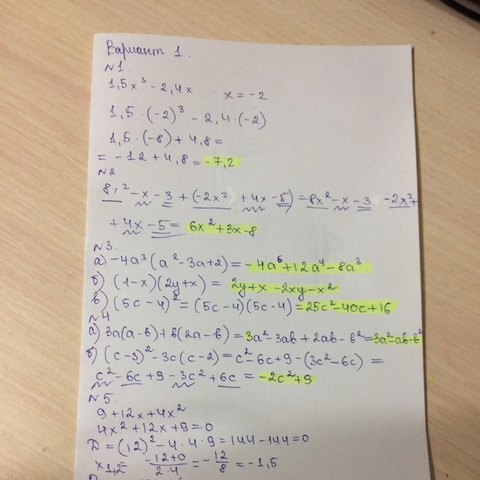 Вариант 1.
№1
1,5x³ - 2,4x x = -2
1,5·(-2)³ - 2,4·(-2)
1,5·(-8) + 4,8 =
= -12 + 4,8 = -7,2
№2
8x² - x - 3 + (-2x² + 4x - 5) = 8x² - x - 3 - 2x² +
+ 4x - 5 = 6x² + 3x - 8
№3.
а) -4a³(a² - 3a + 2) = -4a⁶ + 12a⁴ - 8a³
б) (1-x)(2y+x) = 2y + x - 2xy - x²
в) (5c-4)² = (5c-4)(5c-4) = 25c² - 40c + 16
№4
а) 3a(a-b) + b(2a-b) = 3a² - 3ab + 2ab - b² = 3a² - ab - b²
б) (c-3)² - 3c(c-2) = c² - 6c + 9 - (3c² - 6c) =
c² - 6c + 9 - 3c² + 6c = -2c² + 9
№5.
9 + 12x + 4x²
4x² + 12x + 9 = 0
D = (12)² - 4·4·9 = 144 - 144 = 0
x₁,₂ = -12+0/2·4 = -12/8 = -1,5